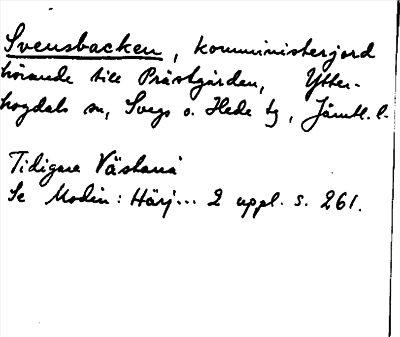 Svensbacken, komministerjord
hörande till Prästgården, Ytter-
hogdals sn, Svegs o. Hede tg, Jämtl. l.
Tidigare Västanå
Se Modin: Härj... 2 uppl. s. 261.